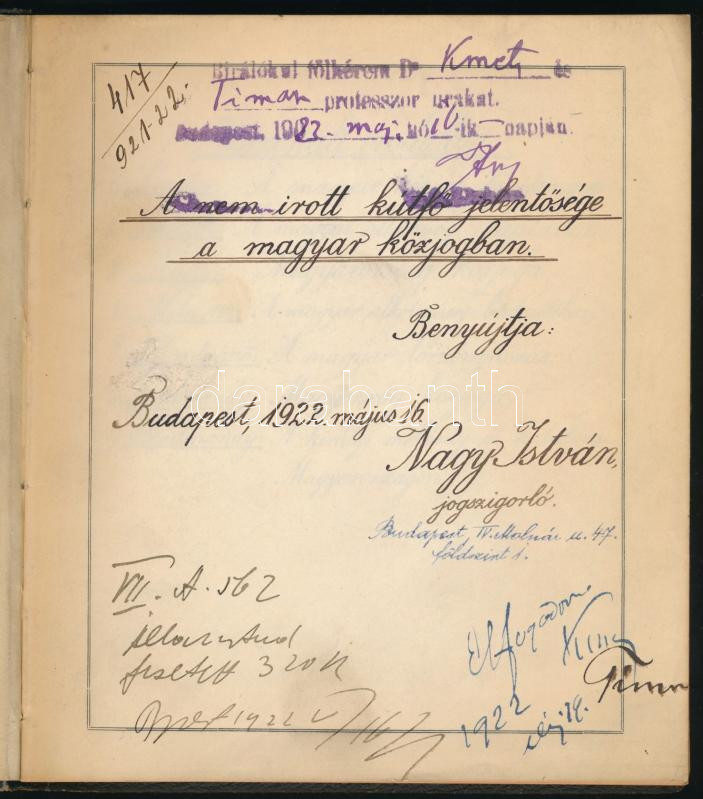 417
921-22.
Birálókul fölkérem Dr Kmety és
Timon professzor urakat.
Budapest, 1922. maj. hó 16-ik napján.
A nem irott kútfő jelentősége
a magyar közjogban.
Benyújtja:
darabanth
Budapest, 1922. május 16.
Nagy István,
jogszigorló.
Budapest, IV. Molnár u. 47.
földszint 1.
VII. A. 562
fizetett 320 K
Bpest 1922 V/16
Elfogadom
Kmety
Timon
1922